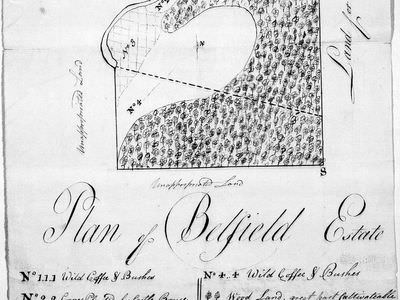 No 5
N
No 4
Land for
Unappropriated Land
Unappropriated Land
S
Plan of Belfield Estate
No 1.1.1 Wild Coffee & Bushes
No 4..4 Wild Coffee & Bushes
Wood Land, great part Cultivateable